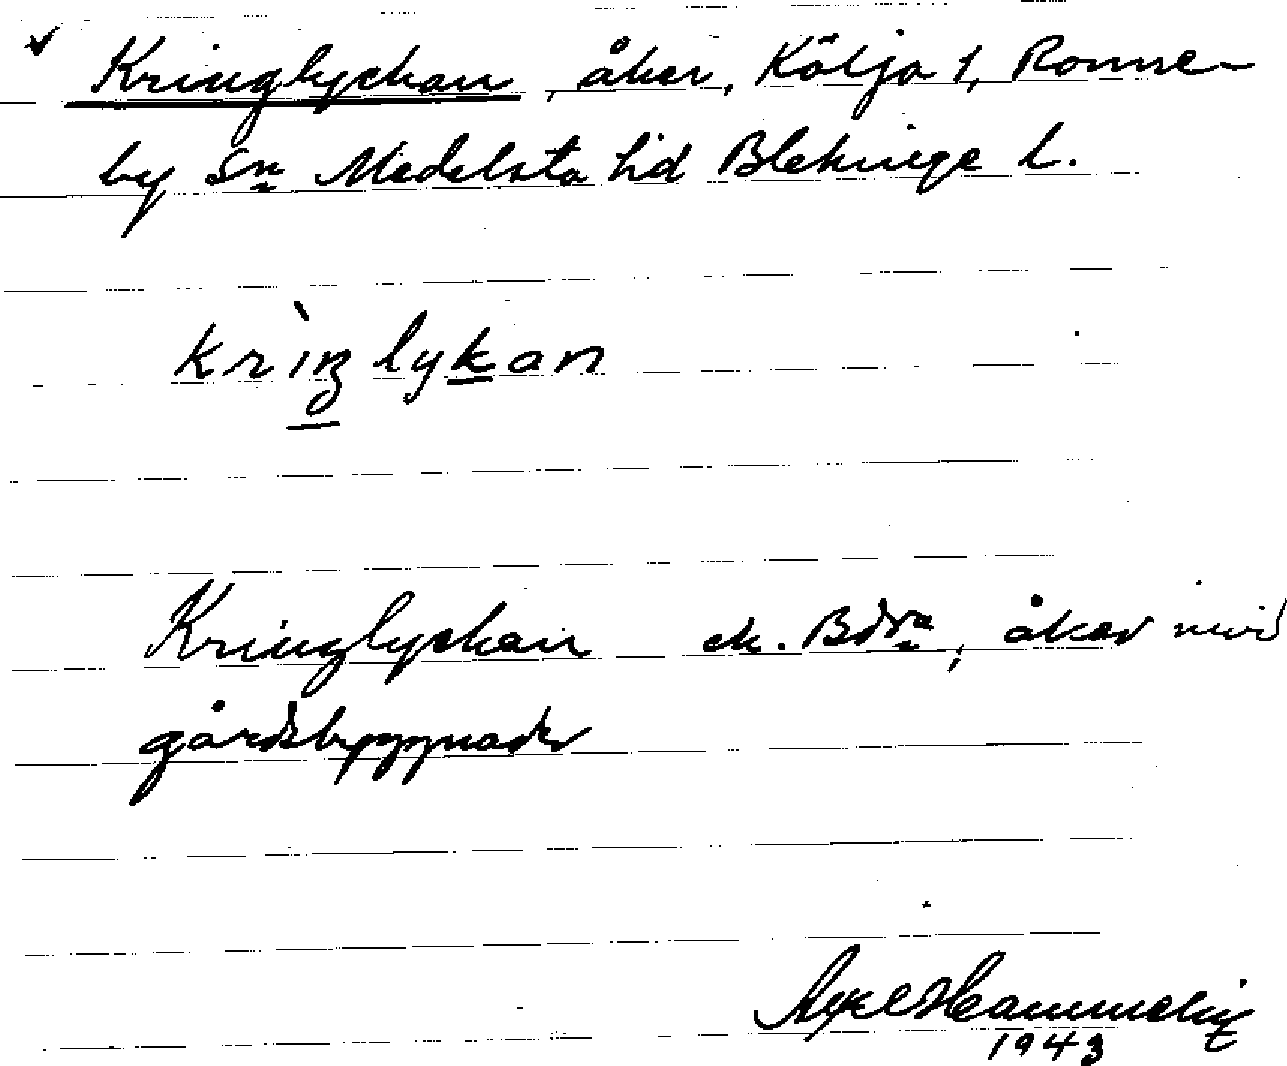 Kringlyckan, åker, Kölja 1, Ronne-
by Sn Medelsta hd Blekinge l.
krìŋlykan
Kringlyckan ek. Bdrn, åker med
gårdsbyggnader
Axel
1943